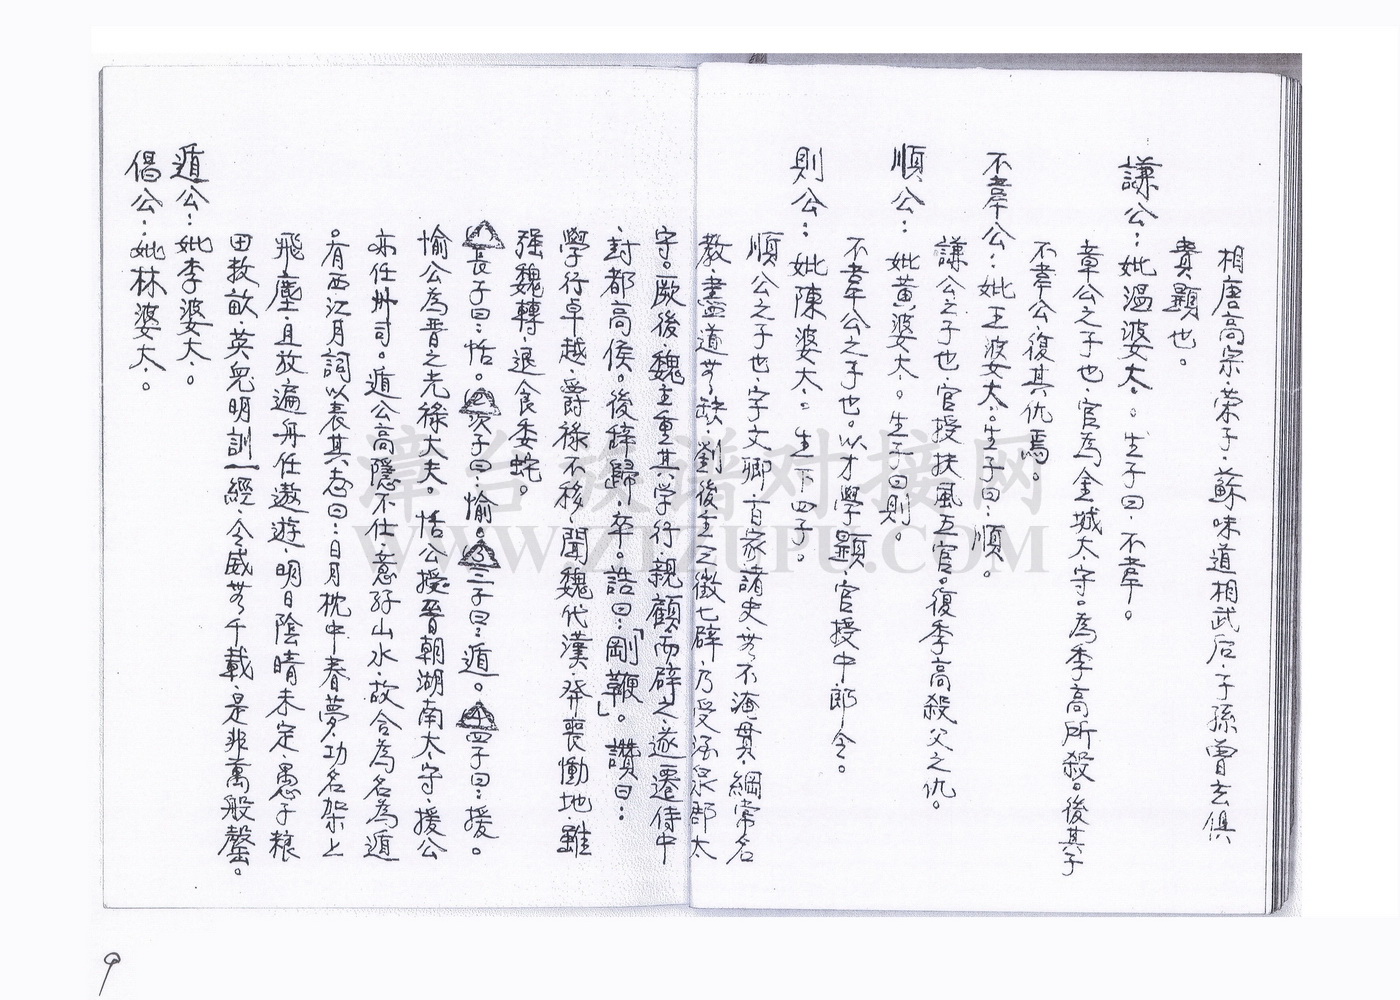 相唐高宗·榮子·蘇味道相武后·子孫曾玄俱
貴顯也。
謙公：妣溫婆太。生子曰·不韋。
章公之子也·官為金城太守。為李高所殺。後其子
不韋公·復其仇焉。
不韋公：妣王婆太。生子曰·順。
謙公之子也·官授扶風五官。復李高殺父之仇。
順公：妣黃婆太。生子曰則。
不韋公之子也。以才學顯·官授中郎令。
則公：妣陳婆太。生下四子。
順公之子也·字文卿·百家諸史·無不淹貫·綱常名
教·盡道無缺·劉後主之徵七辟·乃受酒泉郡太
守。厥後·魏主重其學行·親顧而辟之·遂遷侍中
·封都高侯。後辭歸·卒。誥曰：「剛鞭」。讚曰：
學行卓越·爵祿不移·聞魏代漢·發喪慟地·雖
强魏轉·退食委蛇。
長子曰：恬。次子曰：愉。三子曰：遁。四子曰：援。
愉公為晋之光祿大夫。恬公授晉朝湖南太守·援公
亦任州司。遁公高隱不仕·意好山水·故合為名為遁
。有西江月詞以表其志曰：日月枕中春夢·功名架上
飛塵·且放遍舟任遨遊·明日陰晴未定·愚子粮
田数畝·英兒明訓一經·令威無千載·是非萬般罄。
遁公：妣李婆太。
偈公：妣林婆太。
9
漳台族谱对接网
WWW.ZTZUPU.COM